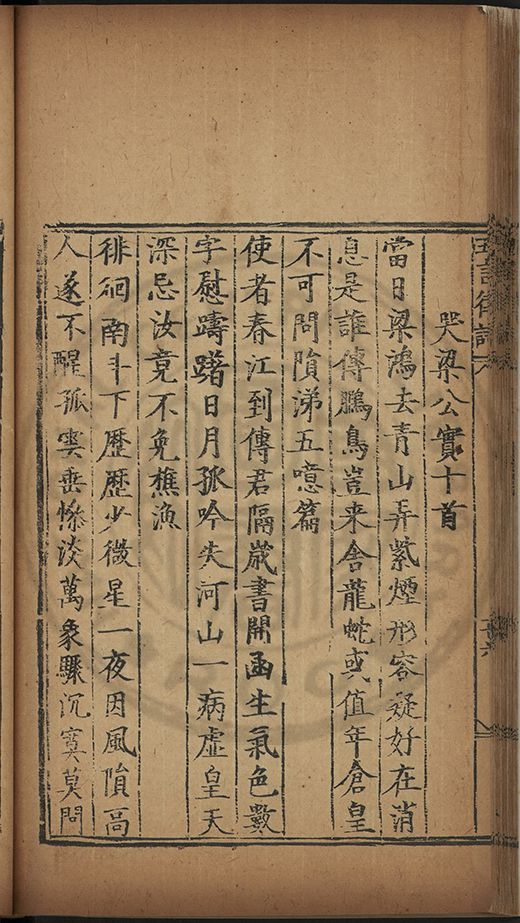 哭梁公實十首
當日梁鴻去青山弄紫煙形容疑好在消
息是誰傳鵬鳥豈来舍龍蛇或值年倉皇
不可問隕涕五噫篇
使者春江到傳君隔歲書開函生氣色數
字慰躊躇日月孤吟失河山一病虛皇天
深忌汝竟不免樵漁
徘徊南斗下歷歷少微星一夜因風隕高
人遂不醒孤雲垂慘淡萬象驟沉冥莫問